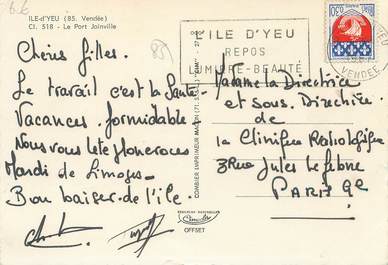 6.6
ILE-d'YEU (85. Vendée)
Cl. 518 - Le Port Joinville
85
L'ILE D'YEU
REPOS
LUMIERE-BEAUTÉ
VENDEE
0,30
Chères filles.
Le travail c'est la Santé.
Vacances formidable
Nous vous téléphonerons
Mardi de Limoges.
Bon baiser de l'île.
Madame la Directrice
et Sous. Directrice.
de
la Clinique Radiologique
3 Rue Jules Lefebvre
PARIS 9e
COMBIER IMPRIMEUR MACON
Combier
OFFSET